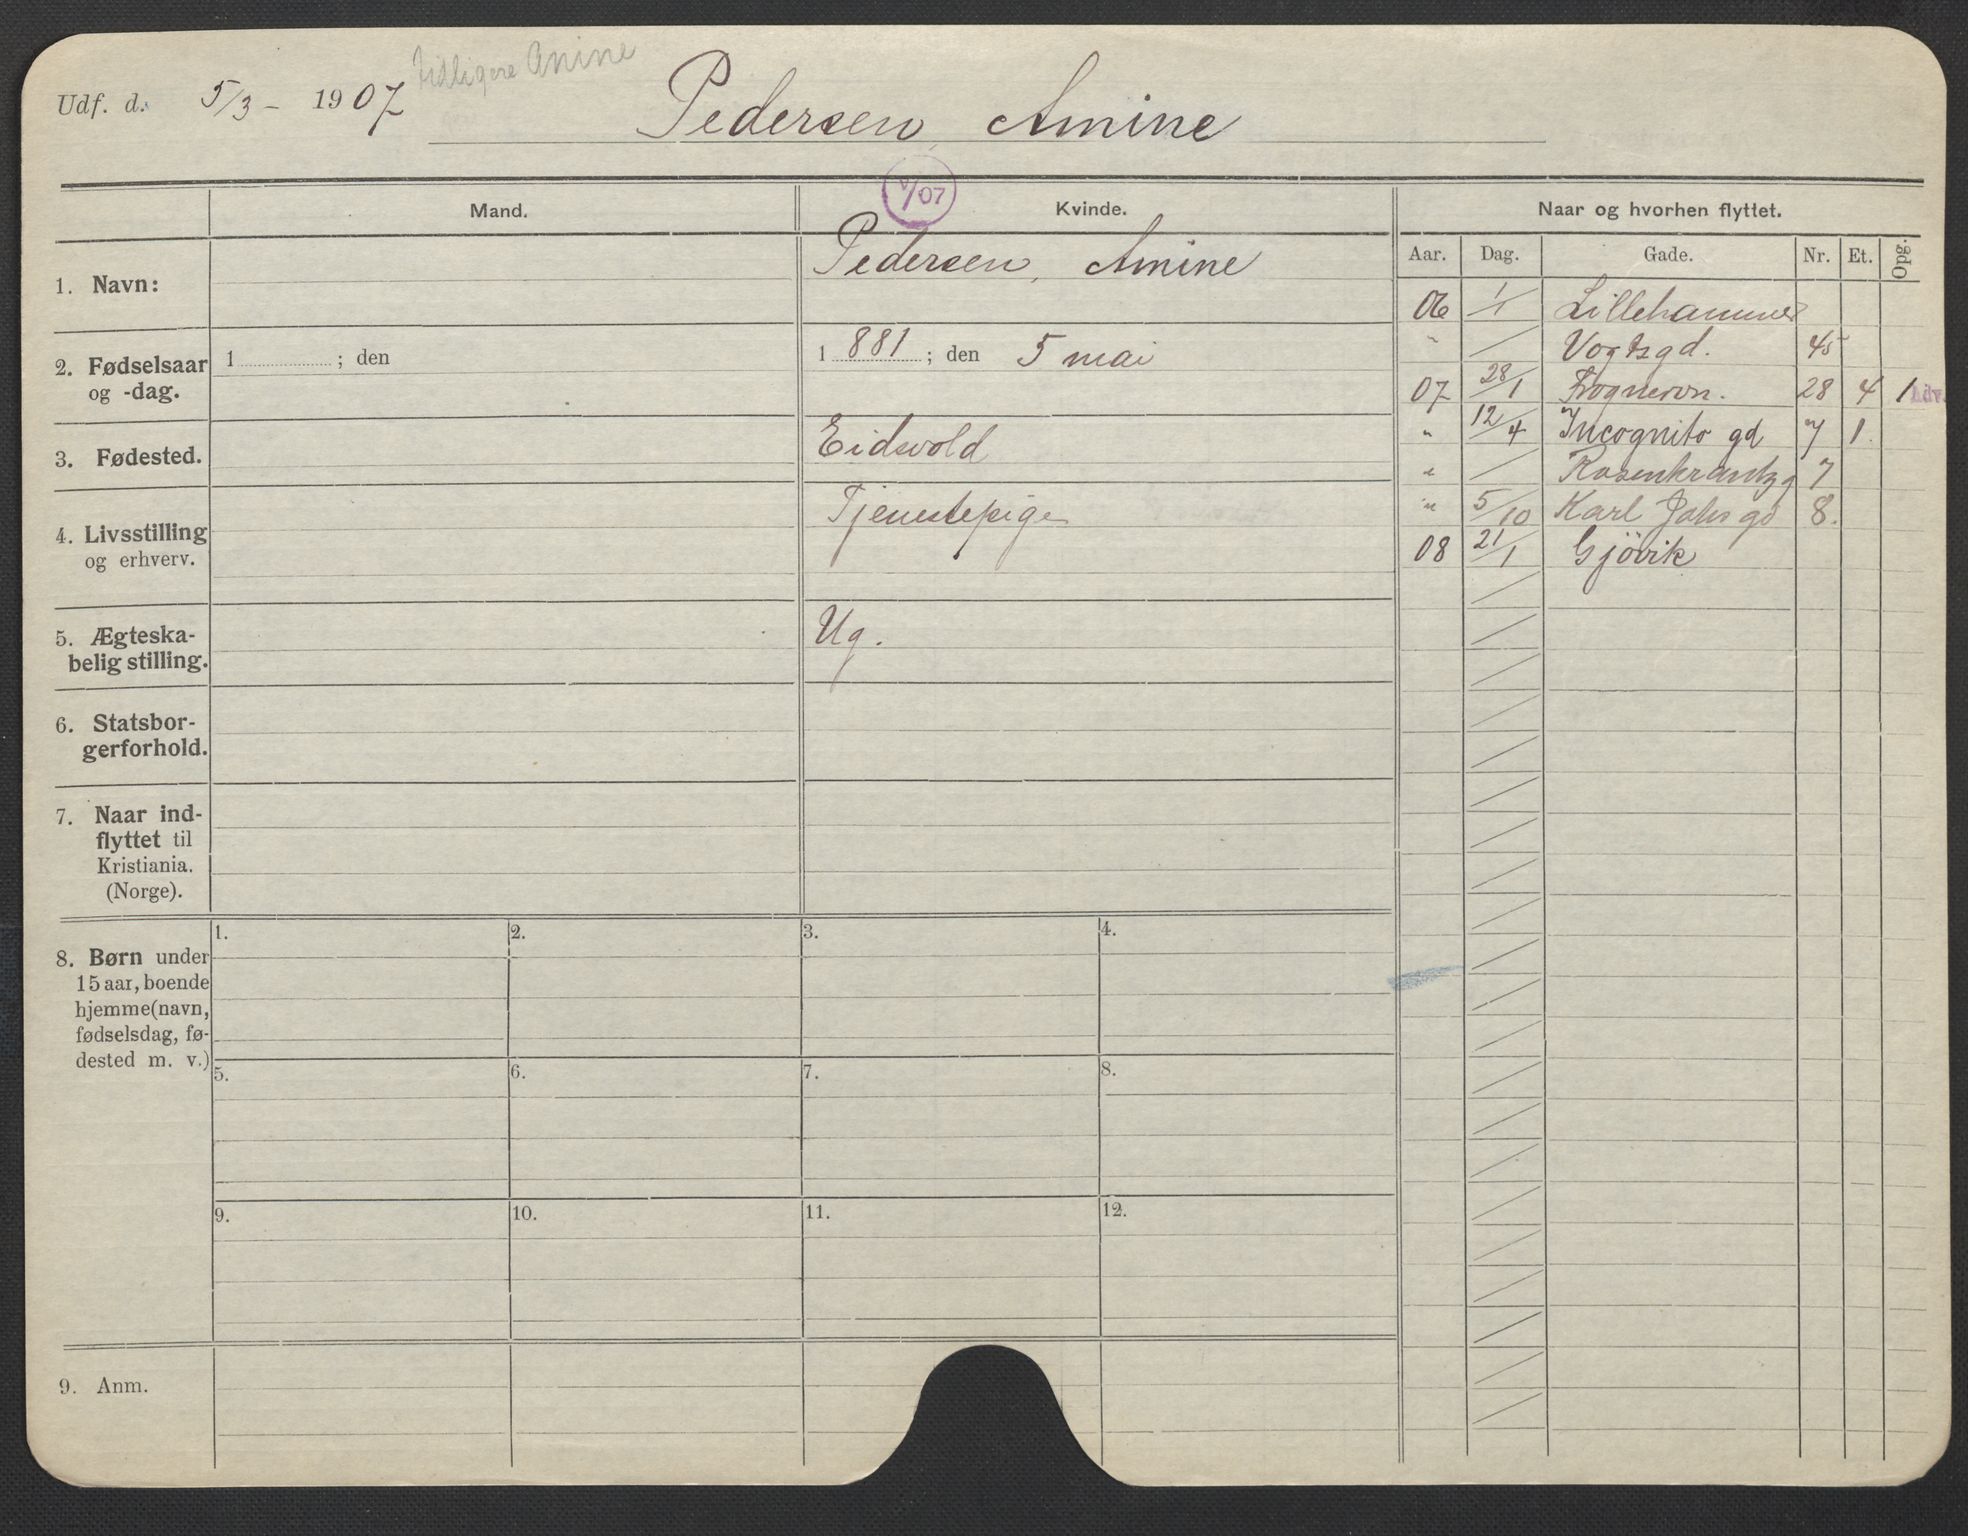 Udf. d. 5/3 - 1907 tidligere Anine
Pedersen, Amine
V/07
Mand. Kvinde. Naar og hvorhen flyttet.
Aar. Dag. Gade. Nr. Et. Opg.
1. Navn: Pedersen, Amine
2. Fødselsaar og -dag.
1 ; den
1 881 ; den 5 mai
3. Fødested. Eidsvold
4. Livsstilling og erhverv. Tjenestepige
5. Ægteska-
belig stilling. Ug.
6. Statsbor-
gerforhold.
7. Naar ind-
flyttet til
Kristiania.
(Norge).
8. Børn under
15 aar, boende
hjemme (navn,
fødselsdag, fø-
dested m. v.)
1. 2. 3. 4.
5. 6. 7. 8.
9. 10. 11. 12.
9. Anm.
06 1/1 Lillehammer
" / Vogtsgd. 45
07 28/1 Frognervn. 28 4 1
" 12/4 Incognito gd 7 1.
" / Rosenkrantzg 7
" 5/10 Karl Johs gd 8.
08 21/1 Gjövik